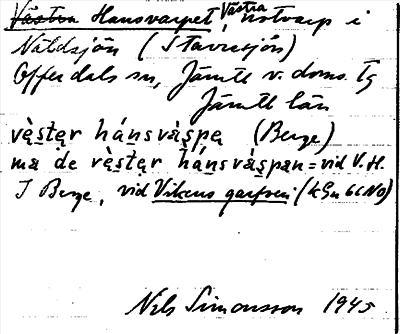 Västra Hansvarpet, Västra, notvarp i
Näldsjön (Stavresjön)
Offerdals sn, Jämtl v. doms. Tg
Jämtl län
vę̀ster hánsvàspę (Berge)
ma de vę̀stęr hánsvàspan = vid V.H.
I Berge, vid Vikens garfveri (kGn 66 NO)
Nils Simonsson 1945